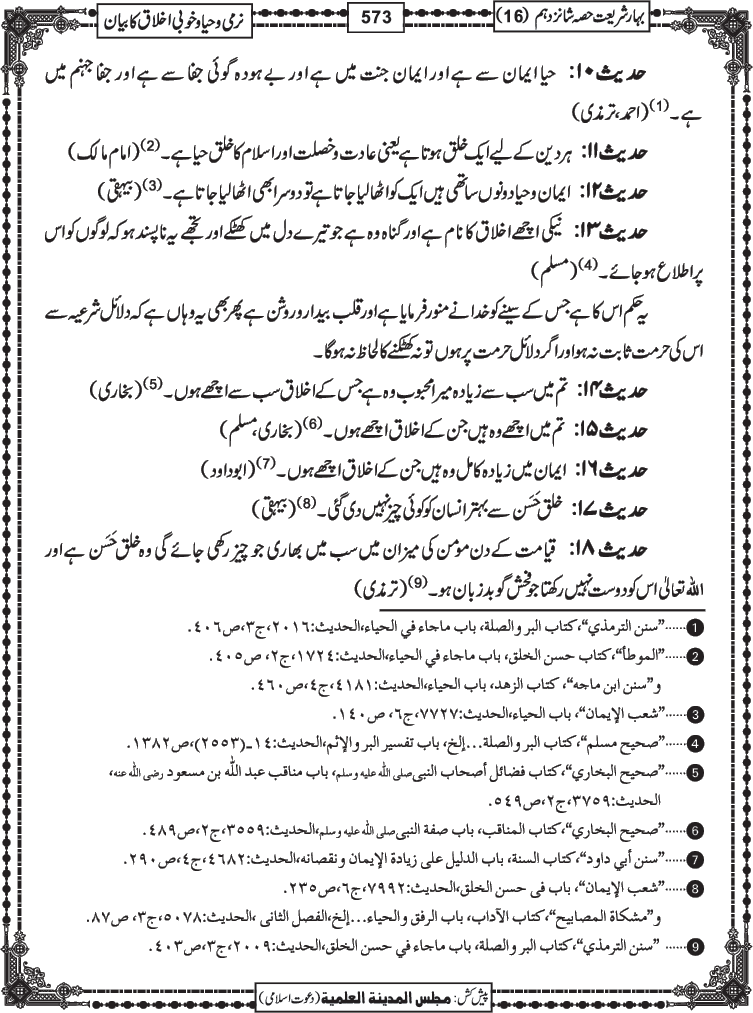 بہارشریعت حصہ شانزدہم (16)
573
نرمی و حیا و خوبی اخلاق کا بیان
حدیث ۱۰: حیا ایمان سے ہے اور ایمان جنت میں ہے اور بے ہودہ گوئی جفا سے ہے اور جفا جہنم میں
ہے۔(1)(احمد، ترمذی)
حدیث ۱۱: ہر دین کے لیے ایک خلق ہوتا ہے یعنی عادت و خصلت اور اسلام کا خلق حیا ہے۔(2)(امام مالک)
حدیث ۱۲: ایمان و حیا دونوں ساتھی ہیں ایک کو اٹھالیا جاتا ہے تو دوسرا بھی اٹھالیا جاتا ہے۔(3)(بیہقی)
حدیث ۱۳: نیکی اچھے اخلاق کا نام ہے اور گناہ وہ ہے جو تیرے دل میں کھٹکے اور تجھے یہ ناپسند ہو کہ لوگوں کو اس
پر اطلاع ہو جائے۔(4)(مسلم)
یہ حکم اس کا ہے جس کے سینے کو خدا نے منور فرمایا ہے اور قلب بیدار و روشن ہے پھر بھی یہ وہاں ہے کہ دلائل شرعیہ سے
اس کی حرمت ثابت نہ ہو اور اگر دلائل حرمت پر ہوں تو نہ کھٹکنے کا لحاظ نہ ہوگا۔
حدیث ۱۴: تم میں سب سے زیادہ میرا محبوب وہ ہے جس کے اخلاق سب سے اچھے ہوں۔(5)(بخاری)
حدیث ۱۵: تم میں اچھے وہ ہیں جن کے اخلاق اچھے ہوں۔(6)(بخاری، مسلم)
حدیث ۱۶: ایمان میں زیادہ کامل وہ ہیں جن کے اخلاق اچھے ہوں۔(7)(ابوداود)
حدیث ۱۷: خلق حَسَن سے بہتر انسان کو کوئی چیز نہیں دی گئی۔(8)(بیہقی)
حدیث ۱۸: قیامت کے دن مؤمن کی میزان میں سب میں بھاری جو چیز رکھی جائے گی وہ خلق حَسَن ہے اور
اللہ تعالیٰ اس کو دوست نہیں رکھتا جو فحش گو بدزبان ہو۔(9)(ترمذی)
1......”سنن الترمذي“، کتاب البر والصلة، باب ماجاء في الحياء، الحديث:۲۰۱٦، ج۳، ص٤٠٦.
2......”الموطأ“، کتاب حسن الخلق، باب ماجاء في الحياء، الحديث:۱۷۲٤، ج۲، ص٤٠٥.
و”سنن ابن ماجه“، کتاب الزهد، باب الحياء، الحديث:٤۱۸۱، ج٤، ص٤٦٠.
3......”شعب الإيمان“، باب الحياء، الحديث:۷۷۲۷، ج٦، ص۱٤۰.
4......”صحيح مسلم“، کتاب البر والصلة...إلخ، باب تفسير البر والإثم، الحديث:۱٤ـ(۲٥٥۳)، ص۱۳۸۲.
5......”صحيح البخاري“، کتاب فضائل أصحاب النبي صلی اللہ علیہ وسلم، باب مناقب عبد اللہ بن مسعود رضی اللہ عنہ،
الحديث:۳۷٥۹، ج۲، ص٥٤۹.
6......”صحيح البخاري“، کتاب المناقب، باب صفة النبي صلی اللہ علیہ وسلم، الحديث:۳٥٥۹، ج۲، ص٤۸۹.
7......”سنن أبي داود“، کتاب السنة، باب الدليل علی زيادة الإيمان و نقصانه، الحديث:٤٦۸۲، ج٤، ص۲۹۰.
8......”شعب الإيمان“، باب فی حسن الخلق، الحديث:۷۹۹۲، ج٦، ص۲۳٥.
و”مشکاة المصابيح“، کتاب الآداب، باب الرفق والحياء...إلخ، الفصل الثانی، الحديث:٥۰۷۸، ج۳، ص۸۷.
9...... ”سنن الترمذي“، کتاب البر والصلة، باب ماجاء في حسن الخلق، الحديث:۲۰۰۹، ج۳، ص٤۰۳.
پیش کش: مجلس المدینة العلمیة (دعوت اسلامی)